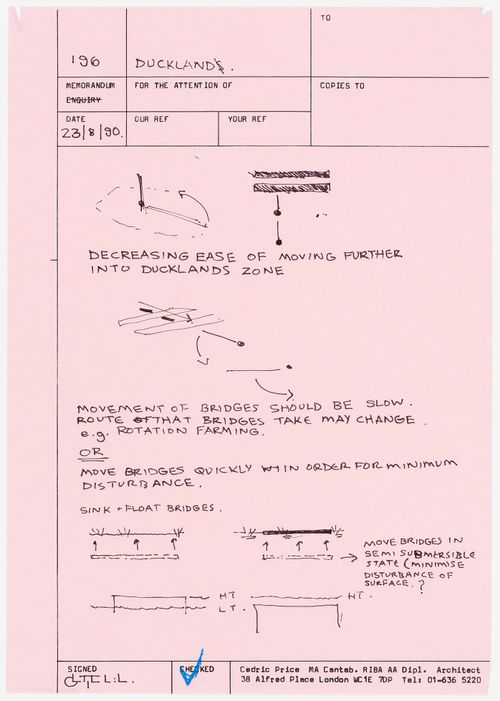 TO
196
DUCKLANDS.
MEMORANDUM
ENQUIRY
FOR THE ATTENTION OF
COPIES TO
DATE
OUR REF
YOUR REF
23/8/90.
DECREASING EASE OF MOVING FURTHER
INTO DUCKLANDS ZONE
MOVEMENT OF BRIDGES SHOULD BE SLOW.
ROUTE THAT BRIDGES TAKE MAY CHANGE.
e.g. ROTATION FARMING.
OR
MOVE BRIDGES QUICKLY IN ORDER FOR MINIMUM
DISTURBANCE.
SINK + FLOAT BRIDGES.
MOVE BRIDGES IN
SEMI SUBMERSIBLE
STATE (MINIMISE
DISTURBANCE OF
SURFACE.?
HT
HT.
LT.
SIGNED
CHECKED
Cedric Price MA Cantab. RIBA AA Dipl. Architect
38 Alfred Place London WC1E 7DP Tel: 01-636 5220